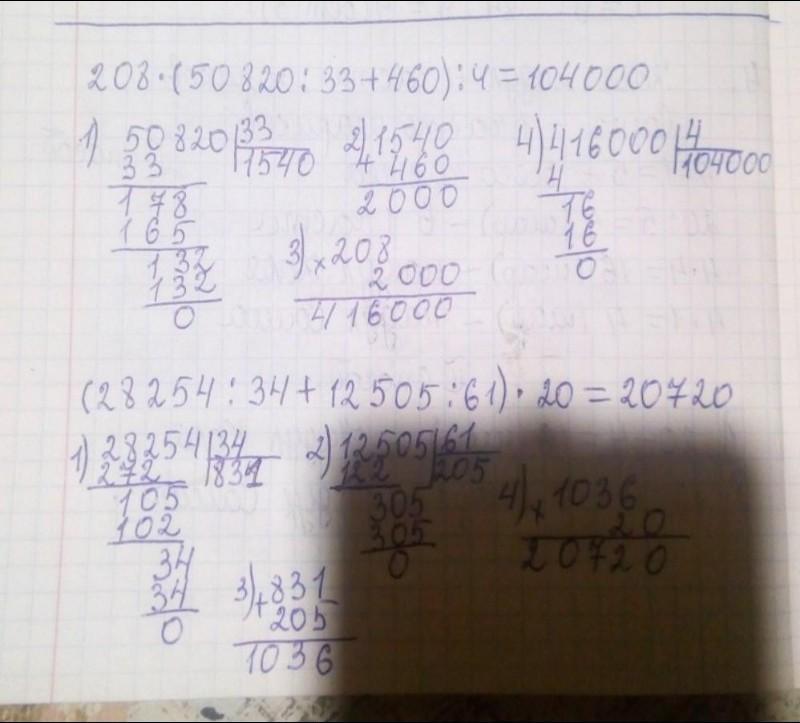 208·(50820:33+460):4=104000
1) 50820 33
33 1540
178
165
132
132
0
2) 1540
+ 460
2000
3) × 208
2000
416000
4) 416000 4
4 104000
16
16
0
(28254:34+12505:61)·20=20720
1) 28254 34
272 831
105
102
34
34
0
2) 12505 61
122 205
305
305
0
3) + 831
205
1036
4) × 1036
20
20720